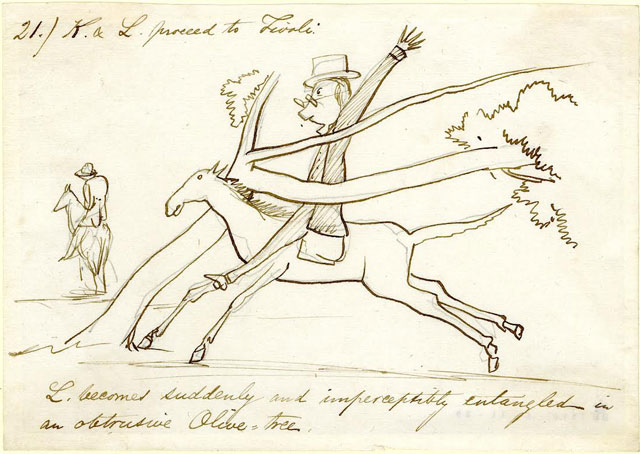 21.) K. & L. proceed to Tivoli.
L. becomes suddenly and imperceptibly entangled in
an obtrusive Olive=tree.